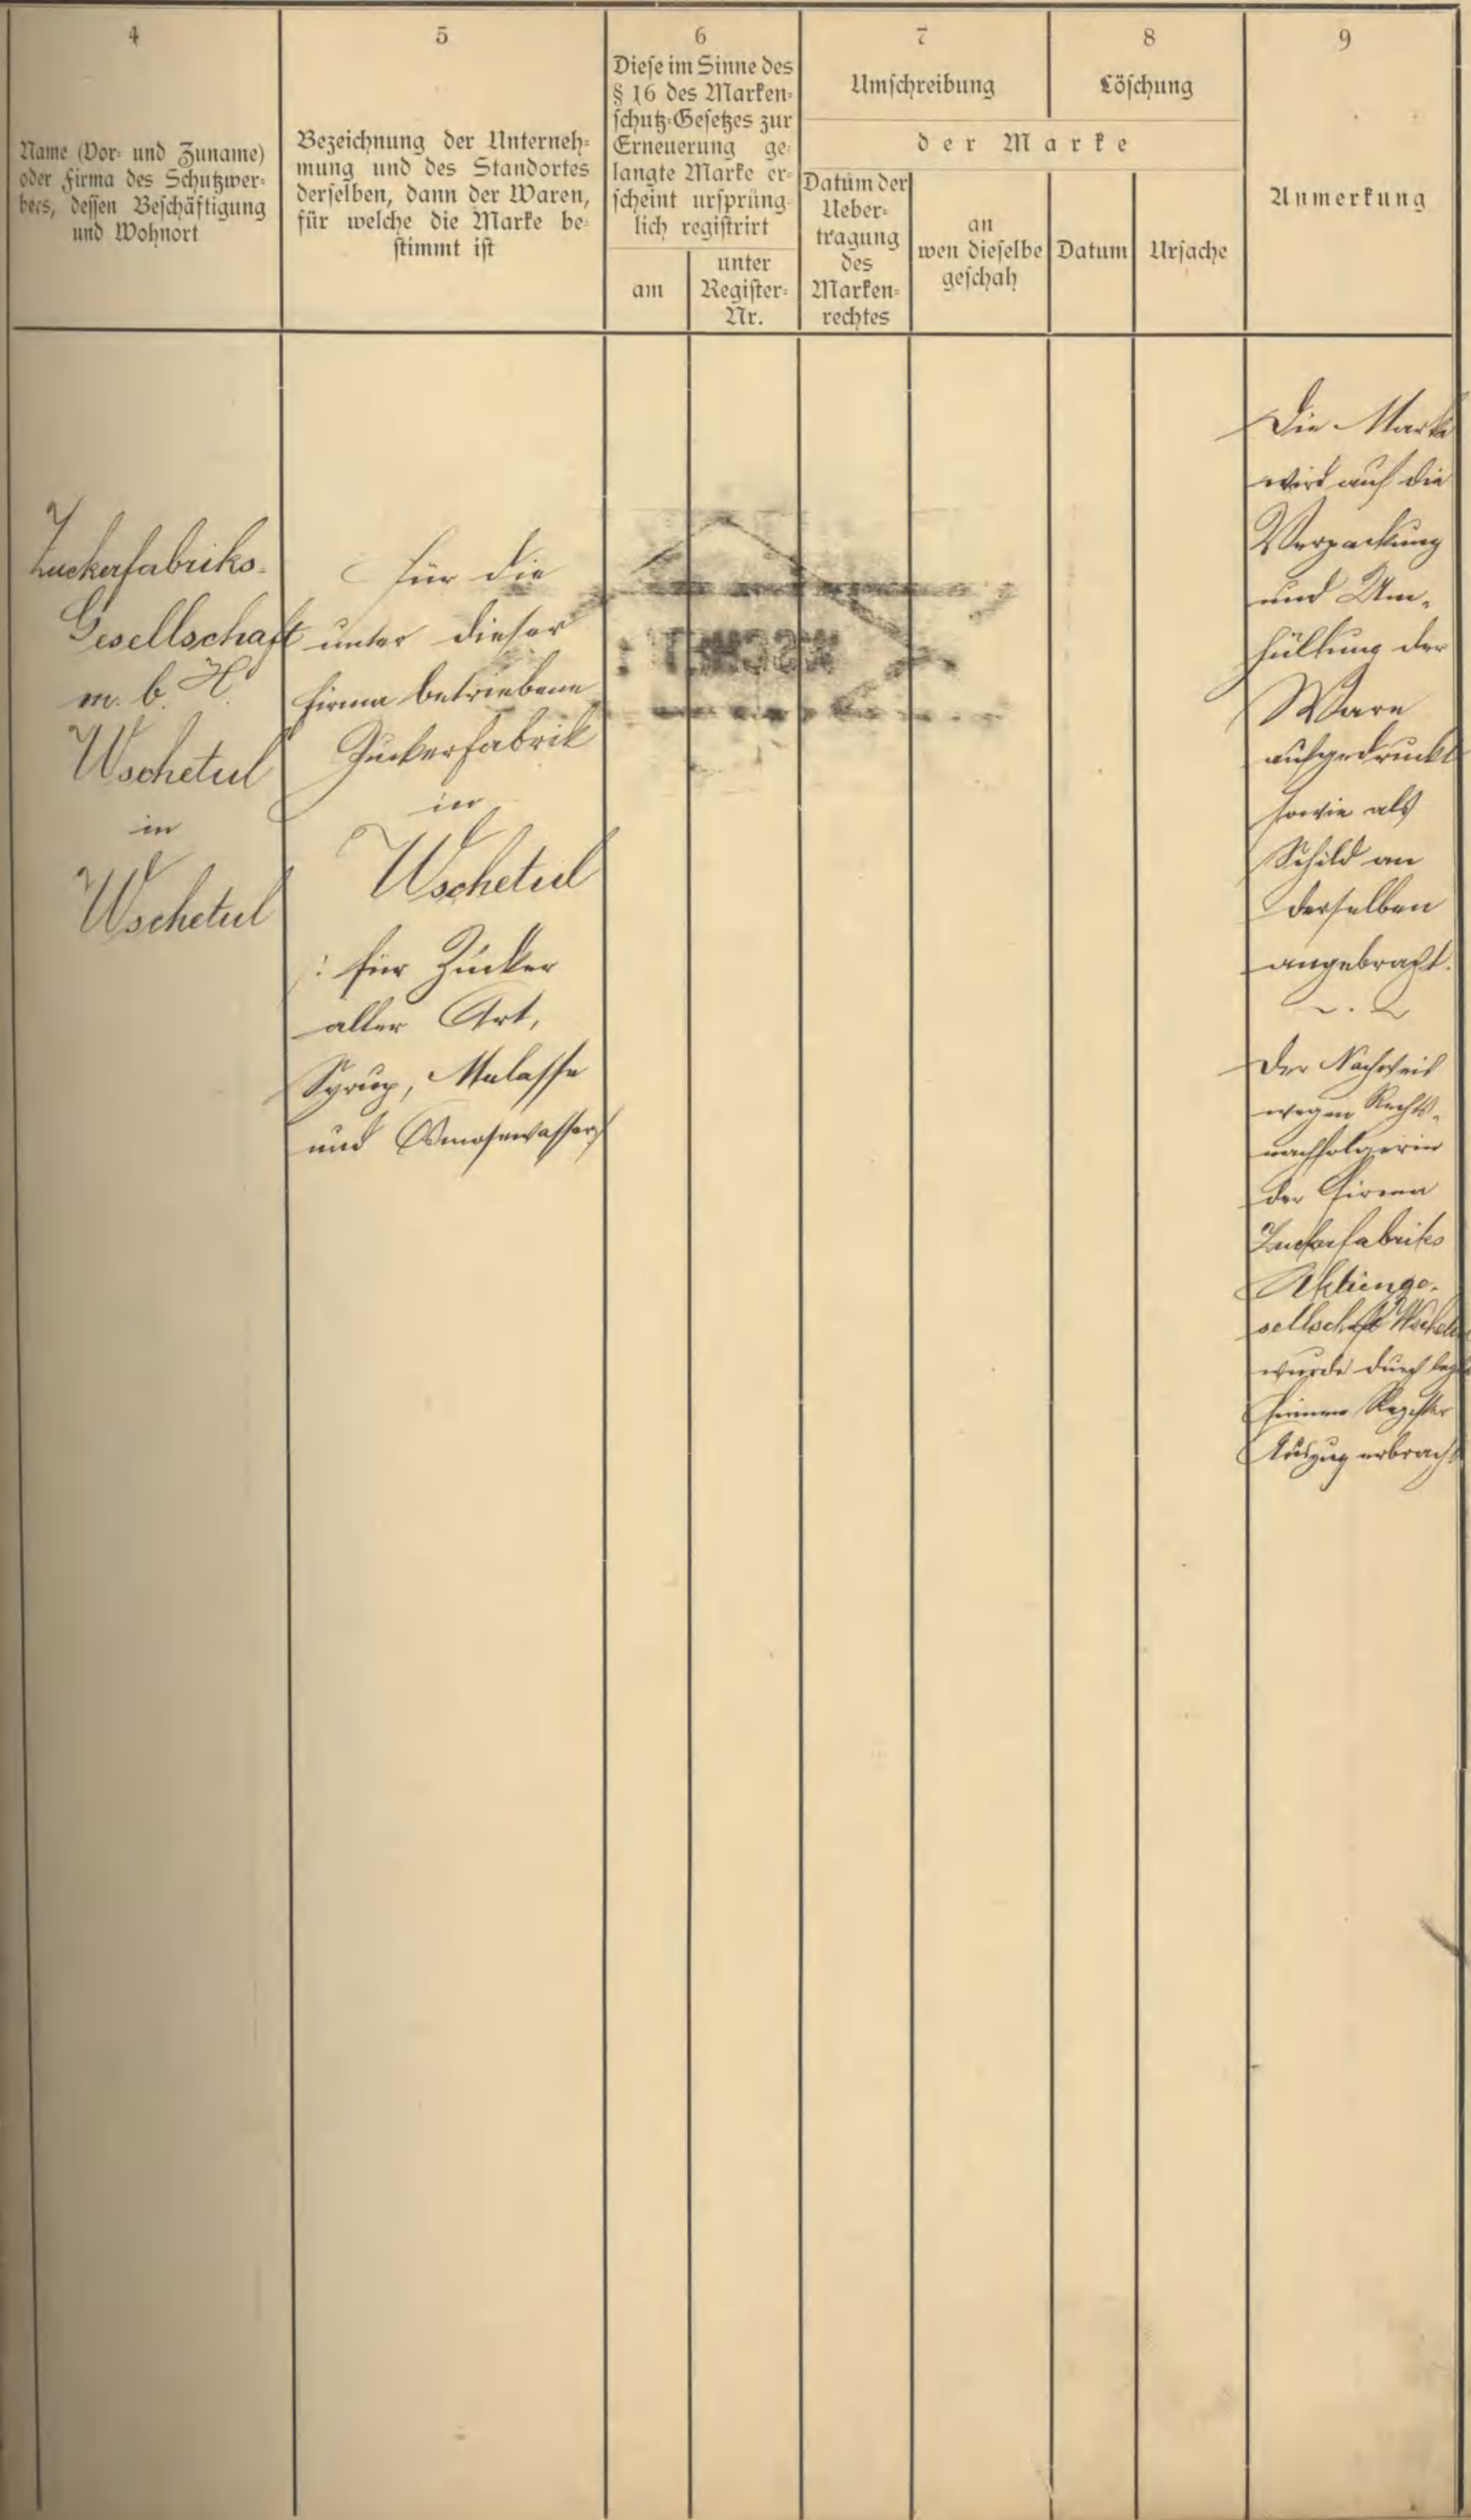 4
Name (Vor- und Zuname)
oder Firma des Schutzwer-
bers, dessen Beschäftigung
und Wohnort
5
Bezeichnung der Unterneh-
mung und des Standortes
derselben, dann der Waren,
für welche die Marke be-
stimmt ist
6
Diese im Sinne des
§ 16 des Marken-
schutz-Gesetzes zur
Erneuerung ge-
langte Marke er-
scheint ursprüng-
lich registrirt
am
unter
Register-
Nr.
7
Umschreibung
8
Löschung
der Marke
Datum der
Ueber-
tragung
des
Marken-
rechtes
an
wen dieselbe
geschah
Datum
Ursache
9
Anmerkung
Zuckerfabriks-
Gesellschaft
m. b. H.
Wschetul
in
Wschetul
für die
unter dieser
Firma betriebene
Zuckerfabrik
in
Wschetul
: für Zucker
aller Art,
Syrup, Melasse
und Osmosewasser
Die Marke
wird auf die
Verpackung
und Um-
hüllung der
Ware
aufgedruckt
sowie als
Schild an
derselben
angebracht.
Der Nachweis
wegen Rechts-
nachfolgerin
der Firma
Zuckerfabriks
Aktienge-
sellschaft Wschetul
wurde durch
Firmen Register
Auszug erbracht